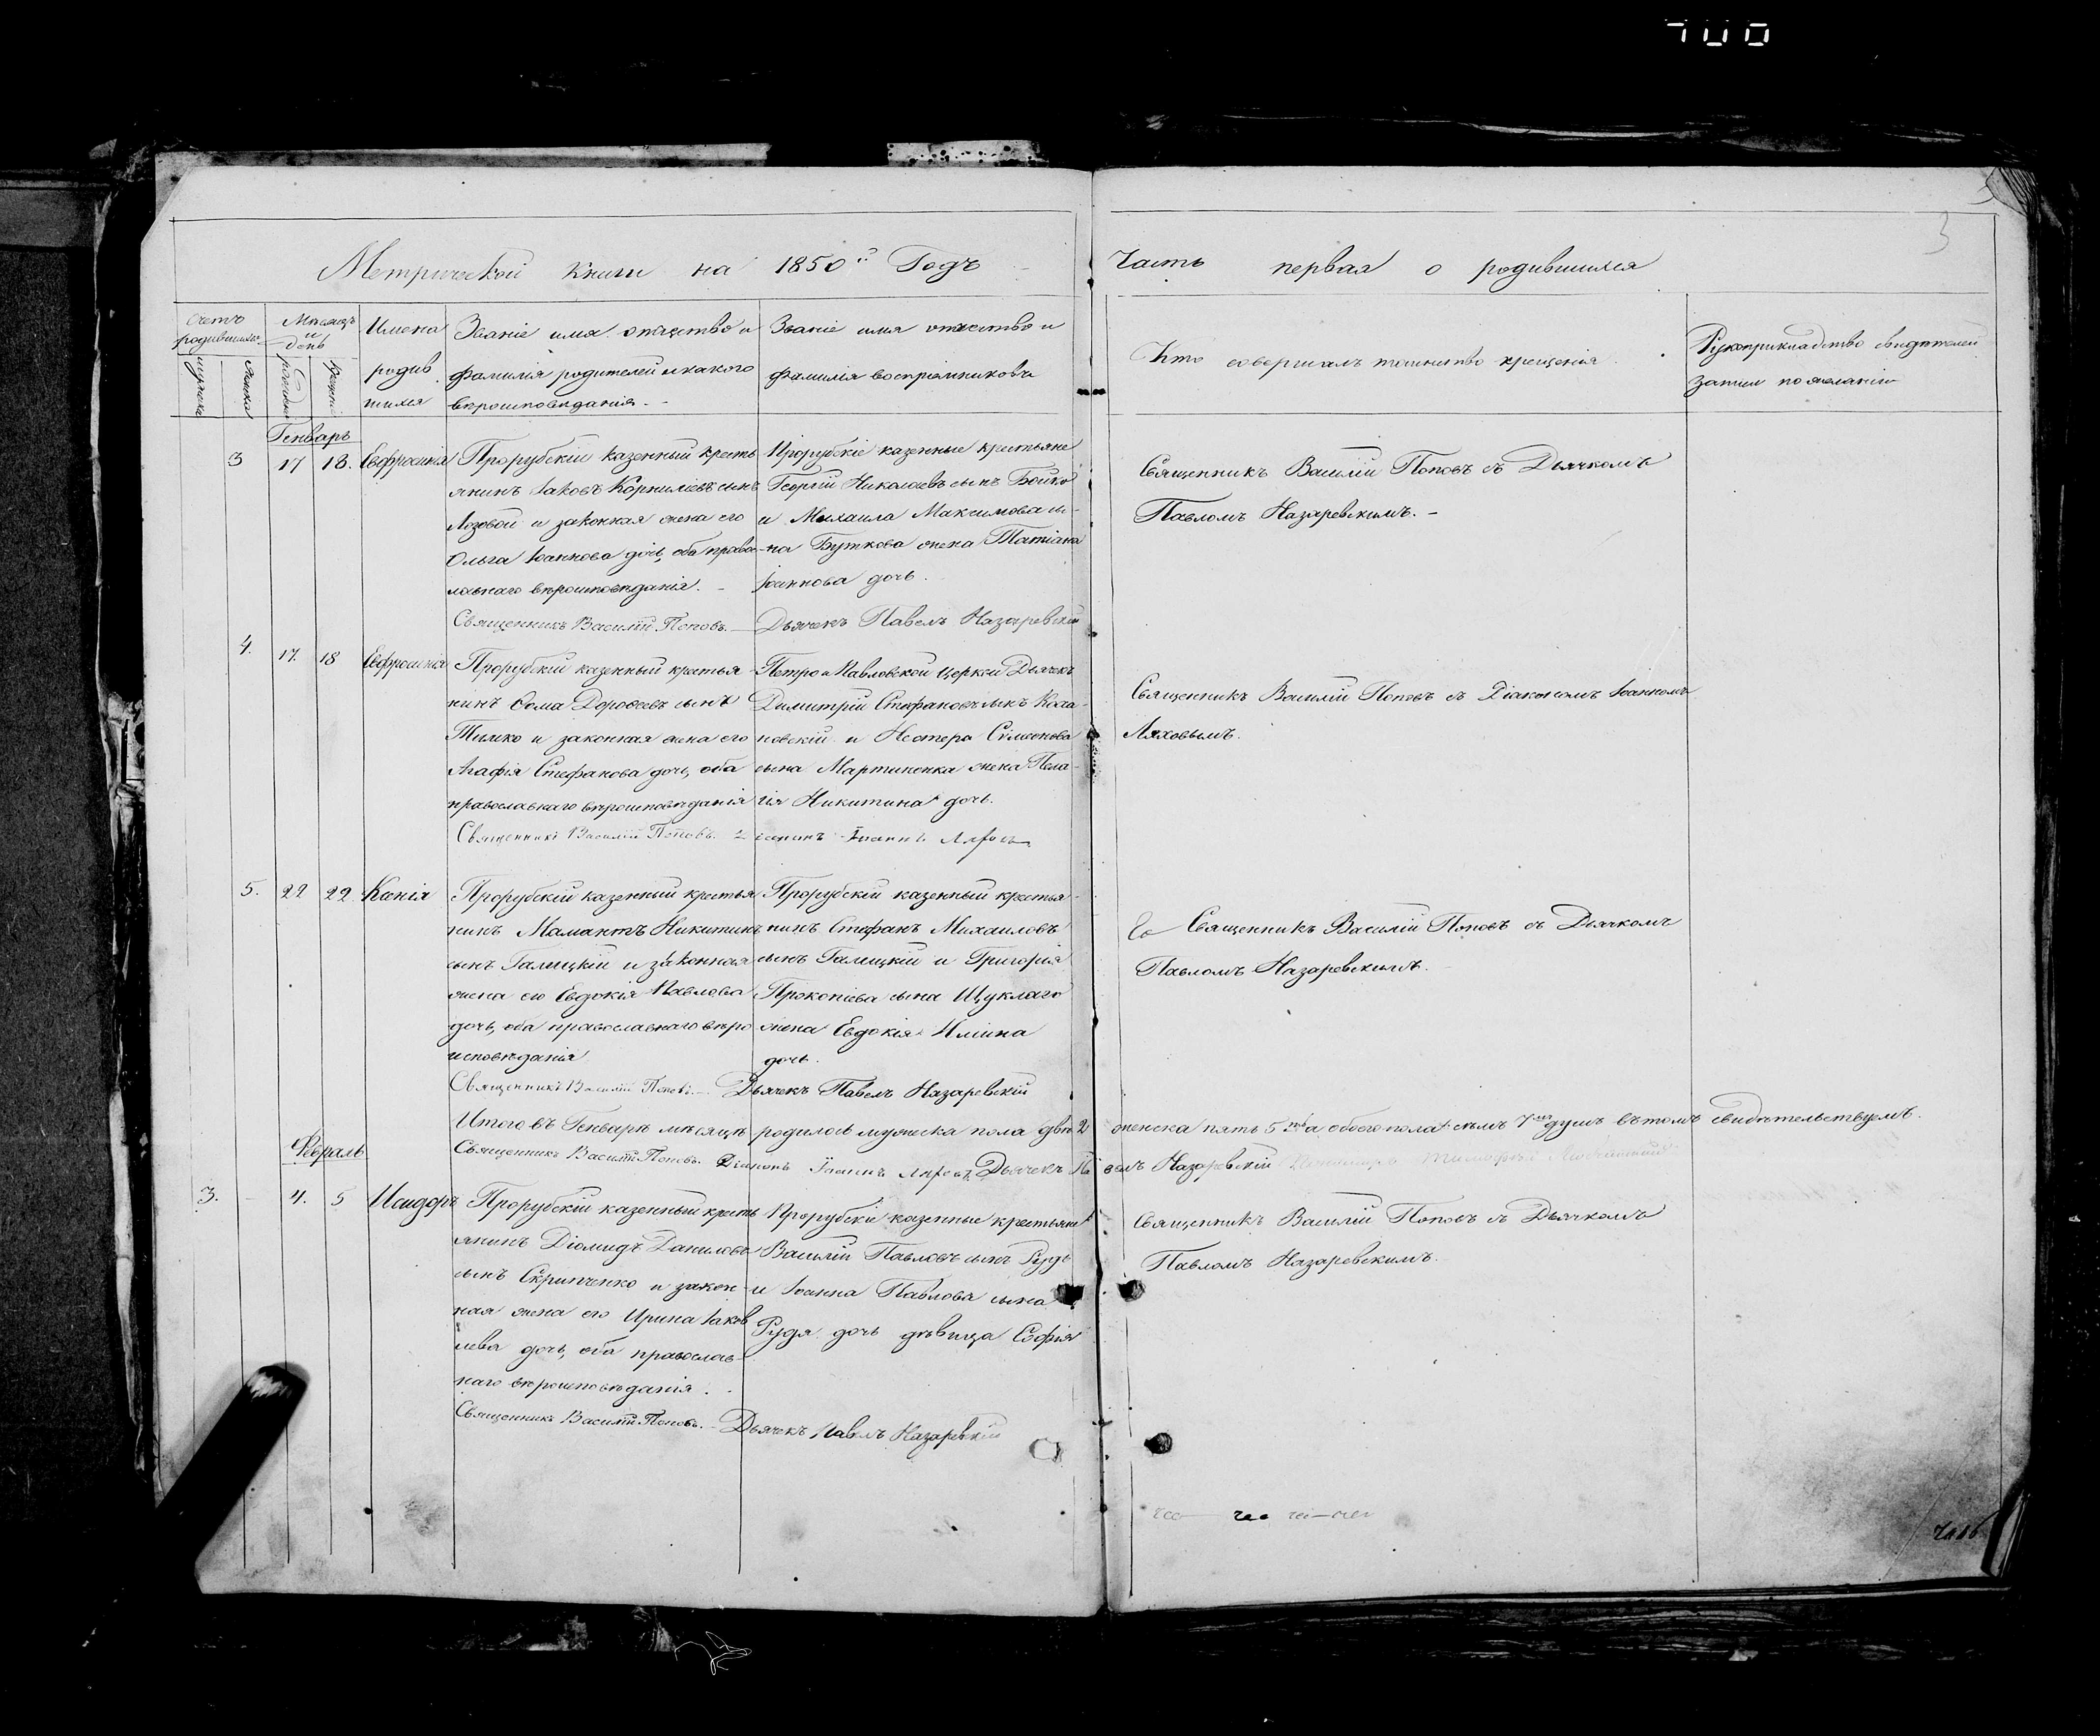 700
3
Метрической книги на 1850й Годъ
Часть первая о родившихся
Счетъ родившихся
мужеска
женска
Мѣсяцъ и день
рожденія
крещенія
Имена родившихся
Званіе имя отчество и
фамилія родителей и какого
вѣроисповѣданія.
Званіе имя отчество и
фамилія воспріемниковъ
Кто совершалъ таинство крещенія
Рукоприкладство свидѣтелей
записи по желанію
Генварь
3 17 18. Евфросинія
Прорубскій казенный кресть
янинъ Іаковъ Корниліевъ сынъ
Лозовой и законная жена его
Ольга Іоаннова дочь, оба право
славнаго вѣроисповѣданія.
Прорубскіе казенные крестьяне
Георгій Николаевъ сынъ Бойко
и Михаила Максимова сы-
на Буткова жена Татіана
Іоаннова дочь.
Священникъ Василій Поповъ съ Дьячкомъ
Павломъ Назаревскимъ.
Священникъ Василій Поповъ. Дьячекъ Павелъ Назаревскій
4. 17. 18 Евфросинія
Прорубскій казенный крестья
нинъ Ѳома Дороѳеевъ сынъ
Тимко и законная жена его
Агафія Стефанова дочь, оба
православнаго вѣроисповѣданія
Петро и Павловской церкви Дьячекъ
Димитрій Стефановъ сынъ Коха-
новскій и Нестера Сѵмеонова
сына Мартиненка жена Пела-
гія Никитина дочь.
Священникъ Василій Поповъ съ Діакономъ Іоанномъ
Ляховымъ.
Священникъ Василій Поповъ. Діаконъ Іоаннъ Ляховъ
5. 22 22. Ксенія
Прорубскій казенный крестья
нинъ Мамантъ Никитинъ
сынъ Галицкій и законная
жена его Евдокія Павлова
дочь, оба православнаго вѣро
исповѣданія
Прорубскій казенный крестья-
нинъ Стефанъ Михаиловъ
сынъ Галицкій и Григорія
Прокопіева сына Щуклаго
жена Евдокія Иліина
дочь.
Священникъ Василій Поповъ съ Дьячкомъ
Павломъ Назаревскимъ.
Священникъ Василій Поповъ. Дьячекъ Павелъ Назаревскій
Итого въ Генварѣ мѣсяцѣ родилось мужеска пола двѣ 2 женска пять 5 а обоего пола семь 7 душъ въ томъ свидѣтельствуемъ.
Священникъ Василій Поповъ. Діаконъ Іоаннъ Ляховъ, Дьячекъ Павелъ Назаревскій Пономарь Тимофей
Февраль
3. 4. 5 Исидоръ
Прорубскій казенный кресть
янинъ Діомидъ Даниловъ
сынъ Скрипченко и закон-
ная жена его Ирина Іаков
лева дочь, оба православ-
наго вѣроисповѣданія.
Прорубскіе казенные крестьяне
Василій Павловъ сынъ Рудь
и Іоанна Павлова сына
Рудя дочь дѣвица Софія
Священникъ Василій Поповъ съ Дьячкомъ
Павломъ Назаревскимъ.
Священникъ Василій Поповъ. Дьячекъ Павелъ Назаревскій